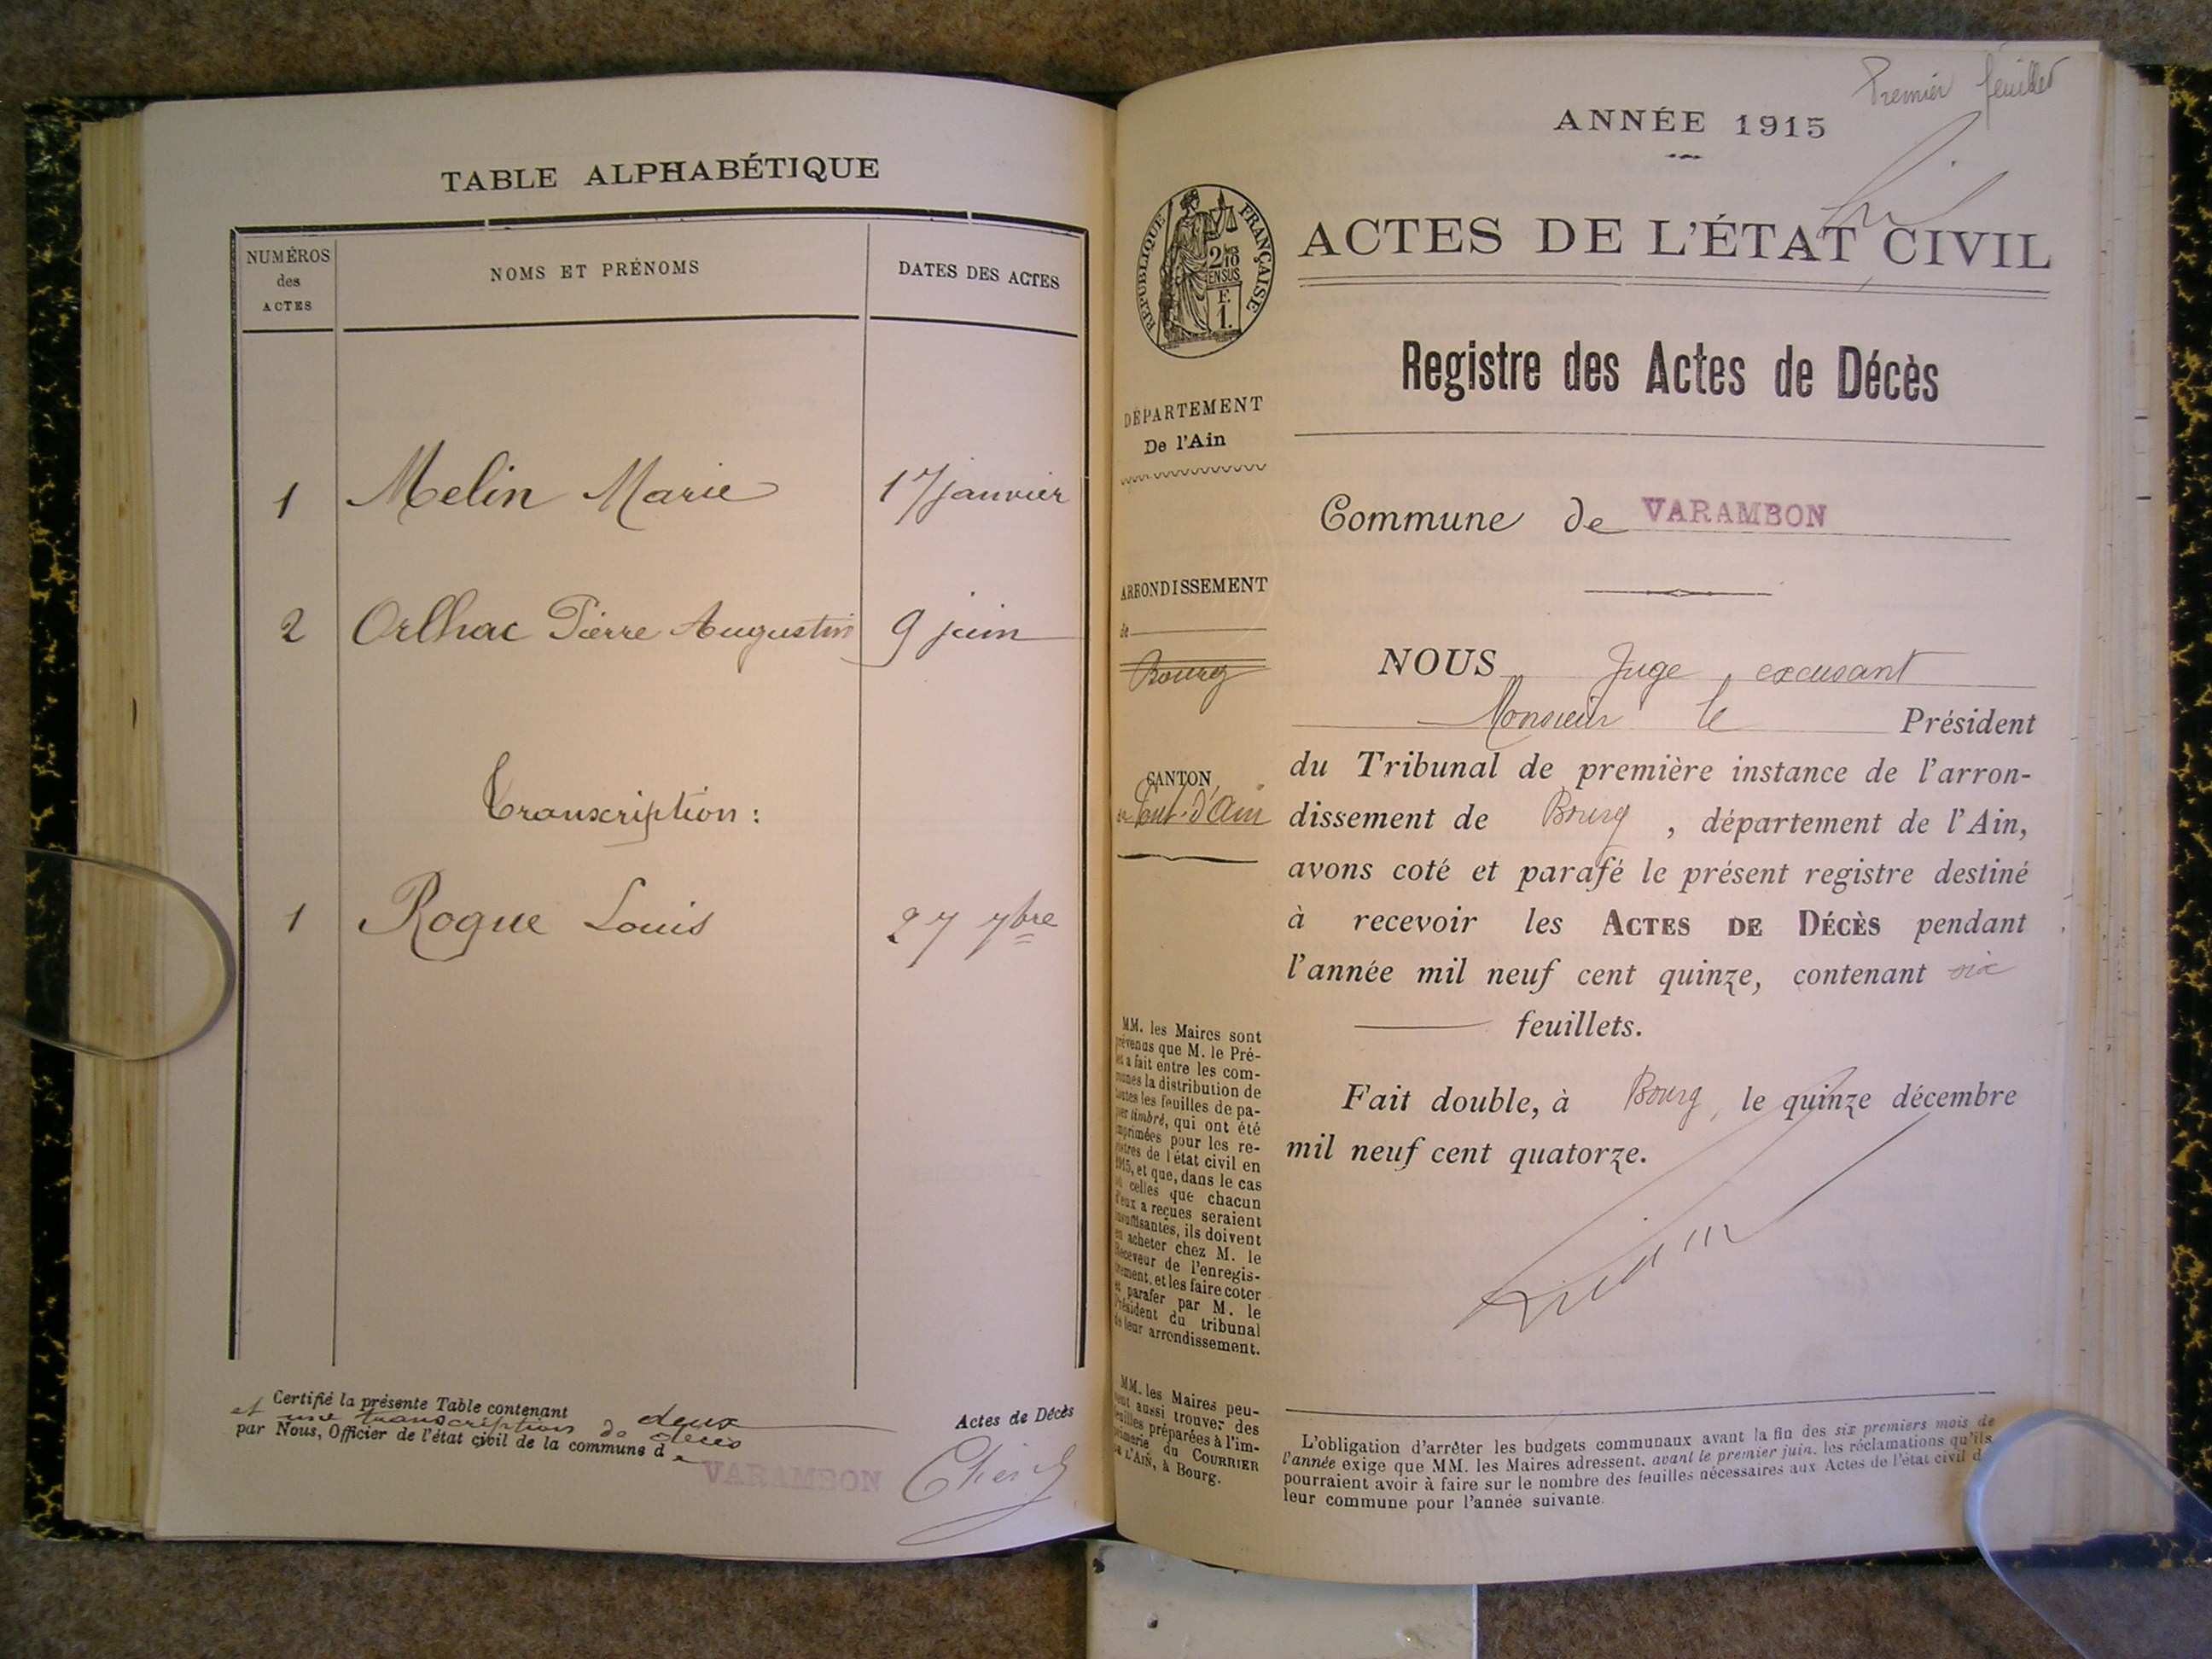 TABLE ALPHABÉTIQUE
NUMÉROS
des
ACTES
NOMS ET PRÉNOMS
DATES DES ACTES
1 Melin Marie 17 janvier
2 Orlhac Pierre Augustin 9 juin
Transcription :
1 Rogue Louis 27 7bre
Certifié la présente Table contenant deux Actes de Décès
et une transcription de décès
par Nous, Officier de l'état civil de la commune de
VARAMBON
Premier feuillet
ANNÉE 1915
RÉPUBLIQUE FRANÇAISE
2/10
EN SUS
E.
1.
ACTES DE L'ÉTAT CIVIL
Registre des Actes de Décès
DÉPARTEMENT
De l'Ain
Commune de VARAMBON
ARRONDISSEMENT
de
Bourg
CANTON
de Pont-d'Ain
NOUS Juge excusant
Monsieur le Président
du Tribunal de première instance de l'arron-
dissement de Bourg, département de l'Ain,
avons coté et parafé le présent registre destiné
à recevoir les ACTES DE DÉCÈS pendant
l'année mil neuf cent quinze, contenant six
feuillets.
Fait double, à Bourg, le quinze décembre
mil neuf cent quatorze.
MM. les Maires sont
prévenus que M. le Pré-
fet a fait entre les com-
munes la distribution de
toutes les feuilles de pa-
pier timbré, qui ont été
imprimées pour les re-
gistres de l'état civil en
1915, et que, dans le cas
où celles que chacun
d'eux a reçues seraient
insuffisantes, ils doivent
en acheter chez M. le
Receveur de l'enregis-
trement, et les faire coter
et parafer par M. le
Président du tribunal
de leur arrondissement.
MM. les Maires peu-
vent aussi trouver des
feuilles préparées à l'im-
primerie du COURRIER
DE L'AIN, à Bourg.
L'obligation d'arrêter les budgets communaux avant la fin des six premiers mois de
l'année exige que MM. les Maires adressent, avant le premier juin, les réclamations qu'ils
pourraient avoir à faire sur le nombre des feuilles nécessaires aux Actes de l'état civil de
leur commune pour l'année suivante.